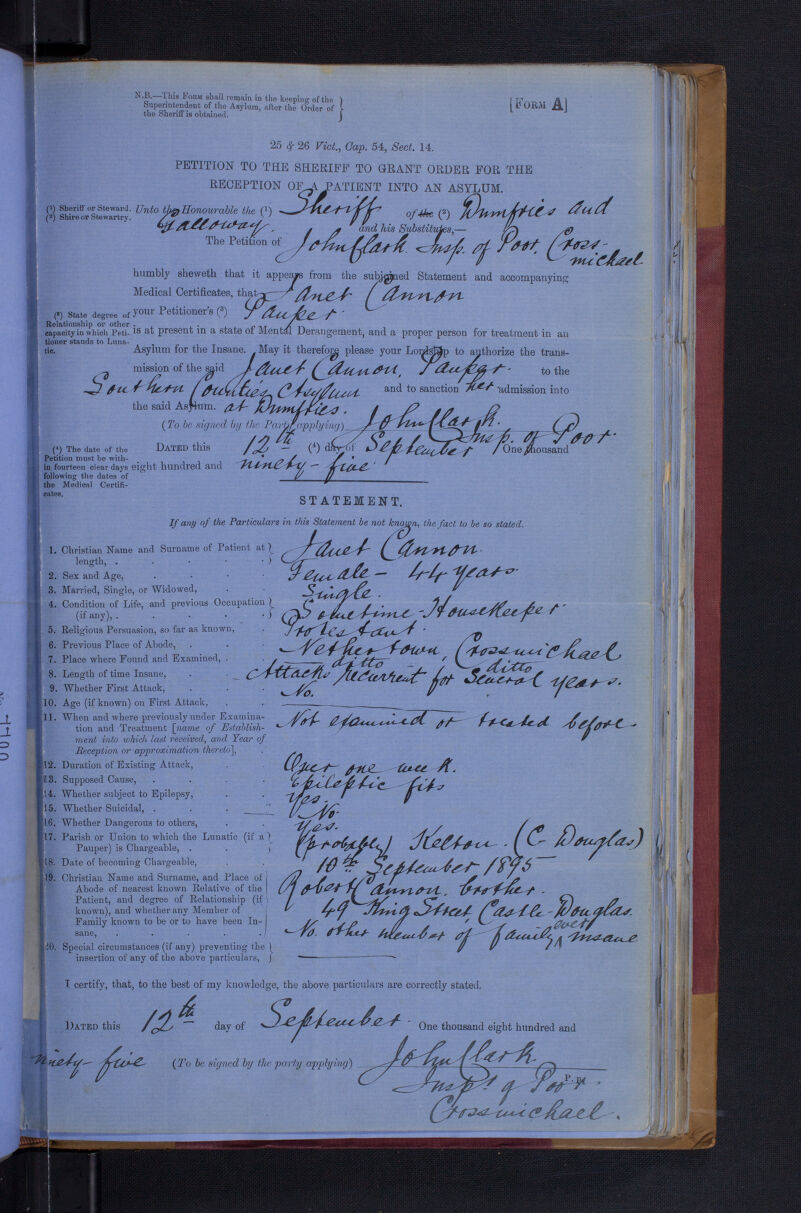 N.B.—This Form shall remain in the keeping of the
Superintendent of the Asylum, after the Order of
the Sheriff is obtained.
[Form A]
25 & 26 Vict., Cap. 54, Sect. 14.
PETITION TO THE SHERIFF TO GRANT ORDER FOR THE
RECEPTION OF A PATIENT INTO AN ASYLUM.
(1) Sheriff or Steward.
(2) Shire or Stewartry.
Unto the Honourable the (1) Sheriff of the (2) Dumfries and
Galloway. and his Substitutes,—
The Petition of John Clark. Insp. of Poor. Cross-
michael
humbly sheweth that it appears from the subjoined Statement and accompanying
Medical Certificates, that Janet Cannon
(3) State degree of
Relationship or other
capacity in which Peti-
tioner stands to Luna-
tic.
your Petitioner's (3) Pauper
is at present in a state of Mental Derangement, and a proper person for treatment in an
Asylum for the Insane. May it therefore please your Lordship to authorize the trans-
mission of the said Janet Cannon, Pauper to the
Southern Counties Asylum and to sanction her admission into
the said Asylum. at Dumfries.
(To be signed by the Party applying) John Clark.
Insp. of Poor.
(4) The date of the
Petition must be with-
in fourteen clear days
following the dates of
the Medical Certifi-
cates.
Dated this 12th (4) day of September One thousand
eight hundred and ninety-five
STATEMENT.
If any of the Particulars in this Statement be not known, the fact to be so stated.
1. Christian Name and Surname of Patient at
length, . Janet Cannon
2. Sex and Age, Female - 44 years
3. Married, Single, or Widowed, Single.
4. Condition of Life, and previous Occupation
(if any), . Sometime - Housekeeper
5. Religious Persuasion, so far as known, Protestant
6. Previous Place of Abode, Nether town, Crossmichael
7. Place where Found and Examined, ditto ditto
8. Length of time Insane, Attacks recurrent for several years.
9. Whether First Attack, No.
10. Age (if known) on First Attack, ———
11. When and where previously under Examina-
tion and Treatment [name of Establish-
ment into which last received, and Year of
Reception or approximation thereto], Not examined or treated before
12. Duration of Existing Attack, Over one week.
13. Supposed Cause, Epileptic fits
14. Whether subject to Epilepsy, Yes.
15. Whether Suicidal, No.
16. Whether Dangerous to others, Yes.
17. Parish or Union to which the Lunatic (if a
Pauper) is Chargeable, (probably) Kelton. (C. Douglas)
18. Date of becoming Chargeable, 10th September 1895
19. Christian Name and Surname, and Place of
Abode of nearest known Relative of the
Patient, and degree of Relationship (if
known), and whether any Member of
Family known to be or to have been In-
sane,
Robert Cannon. brother.
49 King Street, Castle-Douglas.
No other member of family ever insane
20. Special circumstances (if any) preventing the
insertion of any of the above particulars, ———
I certify, that, to the best of my knowledge, the above particulars are correctly stated.
Dated this 12th day of September One thousand eight hundred and
ninety-five (To be signed by the party applying) John Clark.
Inspr of Poor.
Crossmichael.